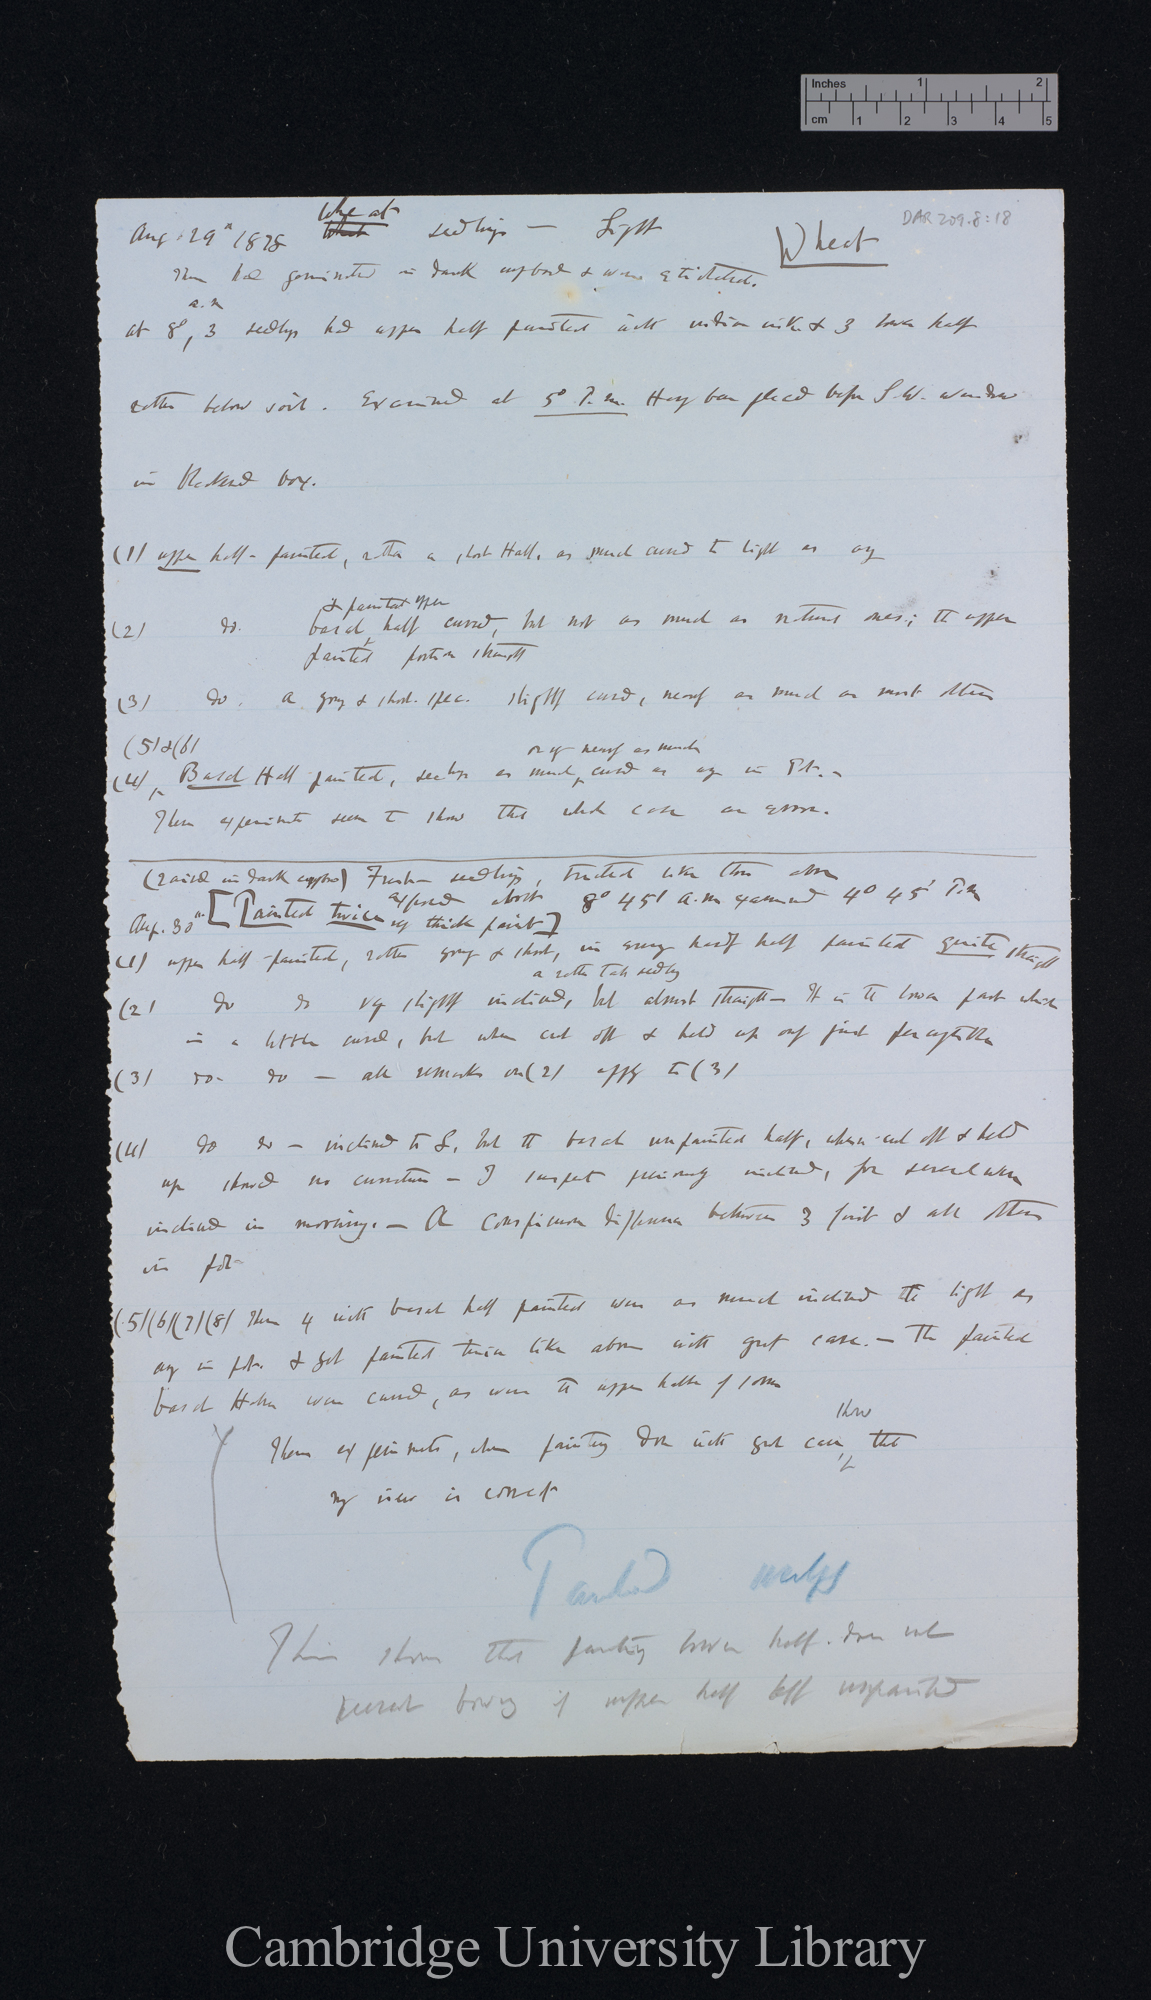 Inches 1 2
cm 1 2 3 4 5
DAR 209.8:18
Wheat
Aug. 29th 1878 Wheat seedlings — Light
Wheat
These had germinated in dark cupboard & were etiolated.
a.m
at 8°, 3 seedlings had upper half painted with indian ink & 3 lower half
rather below soil. Examined at 5° P.m. Having been placed before S.W. window
in blackened box.
(1) upper half-painted, rather a short Hall, as much curved to light as any
& painted upper
(2) do. basal half curved, but not as much as natural ones; the upper
painted portion straight
(3) do. a young & short spec. slightly curved, nearly as much as most others
(5) & (6)
or nearly as much
(4) Basal Half painted, seedlings as much curved as any in Pot. —
These experiments seem to show that whole case an error.
(raised in dark cupboard) Fresh seedlings, treated like those above
exposed about 8° 45' a.m examined 4° 45' P.m
Aug. 30th [Painted twice very thick paint]
(1) upper half-painted, rather young & short, in every half painted quite straight
a rather tall seedling
(2) do do very slightly inclined, but almost straight — It is the lower part which
is a little curved, but when cut off & held up only just perceptible
(3) do- do — all remarks on (2) apply to (3)
(4) do do — inclined to L, but the basal unpainted half, when cut off & held
up showed no curvature — I suspect previously inclined, for several were
inclined in morning. — A conspicuous difference between 3 first & all others
in pot
(5)(6)(7)(8) These 4 with basal half painted were as much inclined to light as
any in pot & got painted twice like above with great care. — The painted
basal Halves were curved, as were the upper halves of some
show
These experiments, when painting done with great care, that
my view is correct
Painted seedlings
This shows that painting lower half does not
prevent bowing if upper half left unpainted
Cambridge University Library